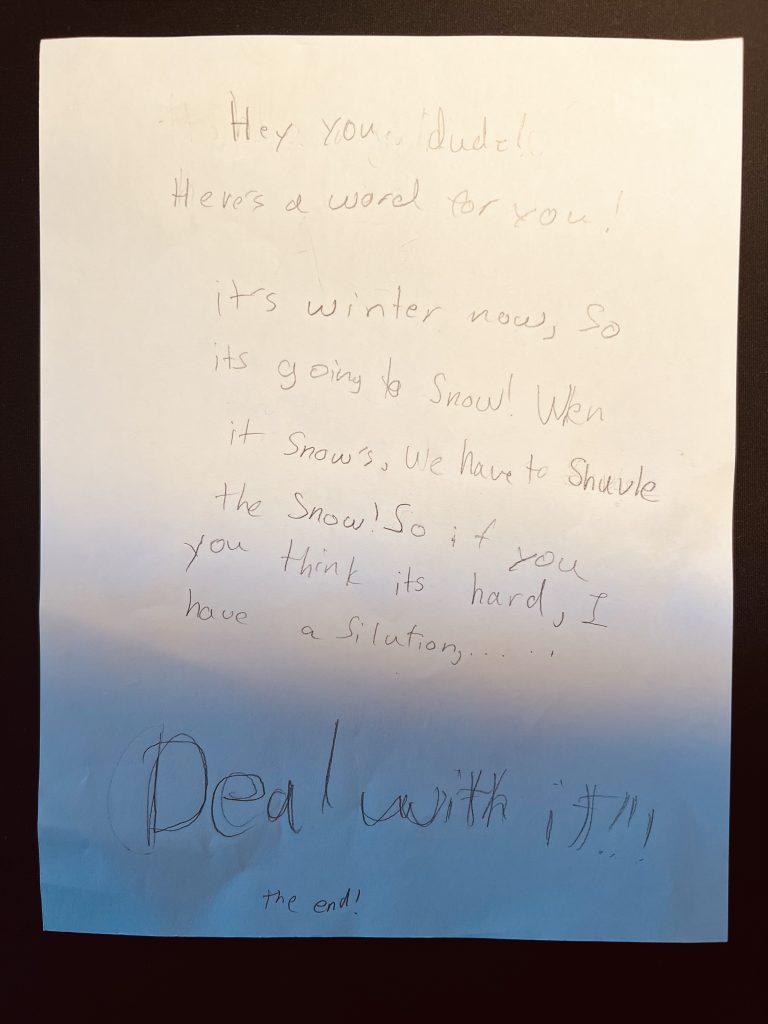 Hey you, dude!
Here's a word for you!
it's winter now, So
its going to Snow! Wen
it Snow's, We have to Shuvle
the Snow! So if you
you think its hard, I
have a Silution,.....
Deal with it!!!
the end!